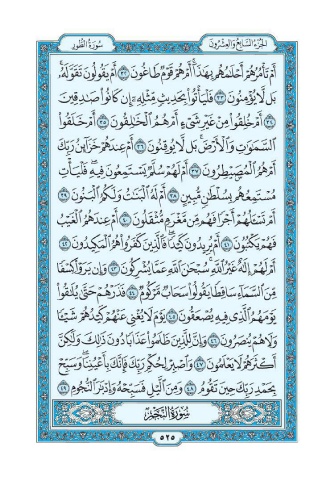 سورة الطور
الجزء السابع والعشرون
أَمْ تَأْمُرُهُمْ أَحْلَامُهُم بِهَٰذَا ۚ أَمْ هُمْ قَوْمٌ طَاغُونَ ٣٢ أَمْ يَقُولُونَ تَقَوَّلَهُ ۚ
بَل لَّا يُؤْمِنُونَ ٣٣ فَلْيَأْتُوا بِحَدِيثٍ مِّثْلِهِ إِن كَانُوا صَادِقِينَ
٣٤ أَمْ خُلِقُوا مِنْ غَيْرِ شَيْءٍ أَمْ هُمُ الْخَالِقُونَ ٣٥ أَمْ خَلَقُوا
السَّمَاوَاتِ وَالْأَرْضَ ۚ بَل لَّا يُوقِنُونَ ٣٦ أَمْ عِندَهُمْ خَزَائِنُ رَبِّكَ
أَمْ هُمُ الْمُصَيْطِرُونَ ٣٧ أَمْ لَهُمْ سُلَّمٌ يَسْتَمِعُونَ فِيهِ ۖ فَلْيَأْتِ
مُسْتَمِعُهُم بِسُلْطَانٍ مُّبِينٍ ٣٨ أَمْ لَهُ الْبَنَاتُ وَلَكُمُ الْبَنُونَ ٣٩
أَمْ تَسْأَلُهُمْ أَجْرًا فَهُم مِّن مَّغْرَمٍ مُّثْقَلُونَ ٤٠ أَمْ عِندَهُمُ الْغَيْبُ
فَهُمْ يَكْتُبُونَ ٤١ أَمْ يُرِيدُونَ كَيْدًا ۖ فَالَّذِينَ كَفَرُوا هُمُ الْمَكِيدُونَ ٤٢
أَمْ لَهُمْ إِلَٰهٌ غَيْرُ اللَّهِ ۚ سُبْحَانَ اللَّهِ عَمَّا يُشْرِكُونَ ٤٣ وَإِن يَرَوْا كِسْفًا
مِّنَ السَّمَاءِ سَاقِطًا يَقُولُوا سَحَابٌ مَّرْكُومٌ ٤٤ فَذَرْهُمْ حَتَّىٰ يُلَاقُوا
يَوْمَهُمُ الَّذِي فِيهِ يُصْعَقُونَ ٤٥ يَوْمَ لَا يُغْنِي عَنْهُمْ كَيْدُهُمْ شَيْئًا
وَلَا هُمْ يُنصَرُونَ ٤٦ وَإِنَّ لِلَّذِينَ ظَلَمُوا عَذَابًا دُونَ ذَٰلِكَ وَلَٰكِنَّ
أَكْثَرَهُمْ لَا يَعْلَمُونَ ٤٧ وَاصْبِرْ لِحُكْمِ رَبِّكَ فَإِنَّكَ بِأَعْيُنِنَا ۖ وَسَبِّحْ
بِحَمْدِ رَبِّكَ حِينَ تَقُومُ ٤٨ وَمِنَ اللَّيْلِ فَسَبِّحْهُ وَإِدْبَارَ النُّجُومِ ٤٩
سورة النجم
٥٢٥